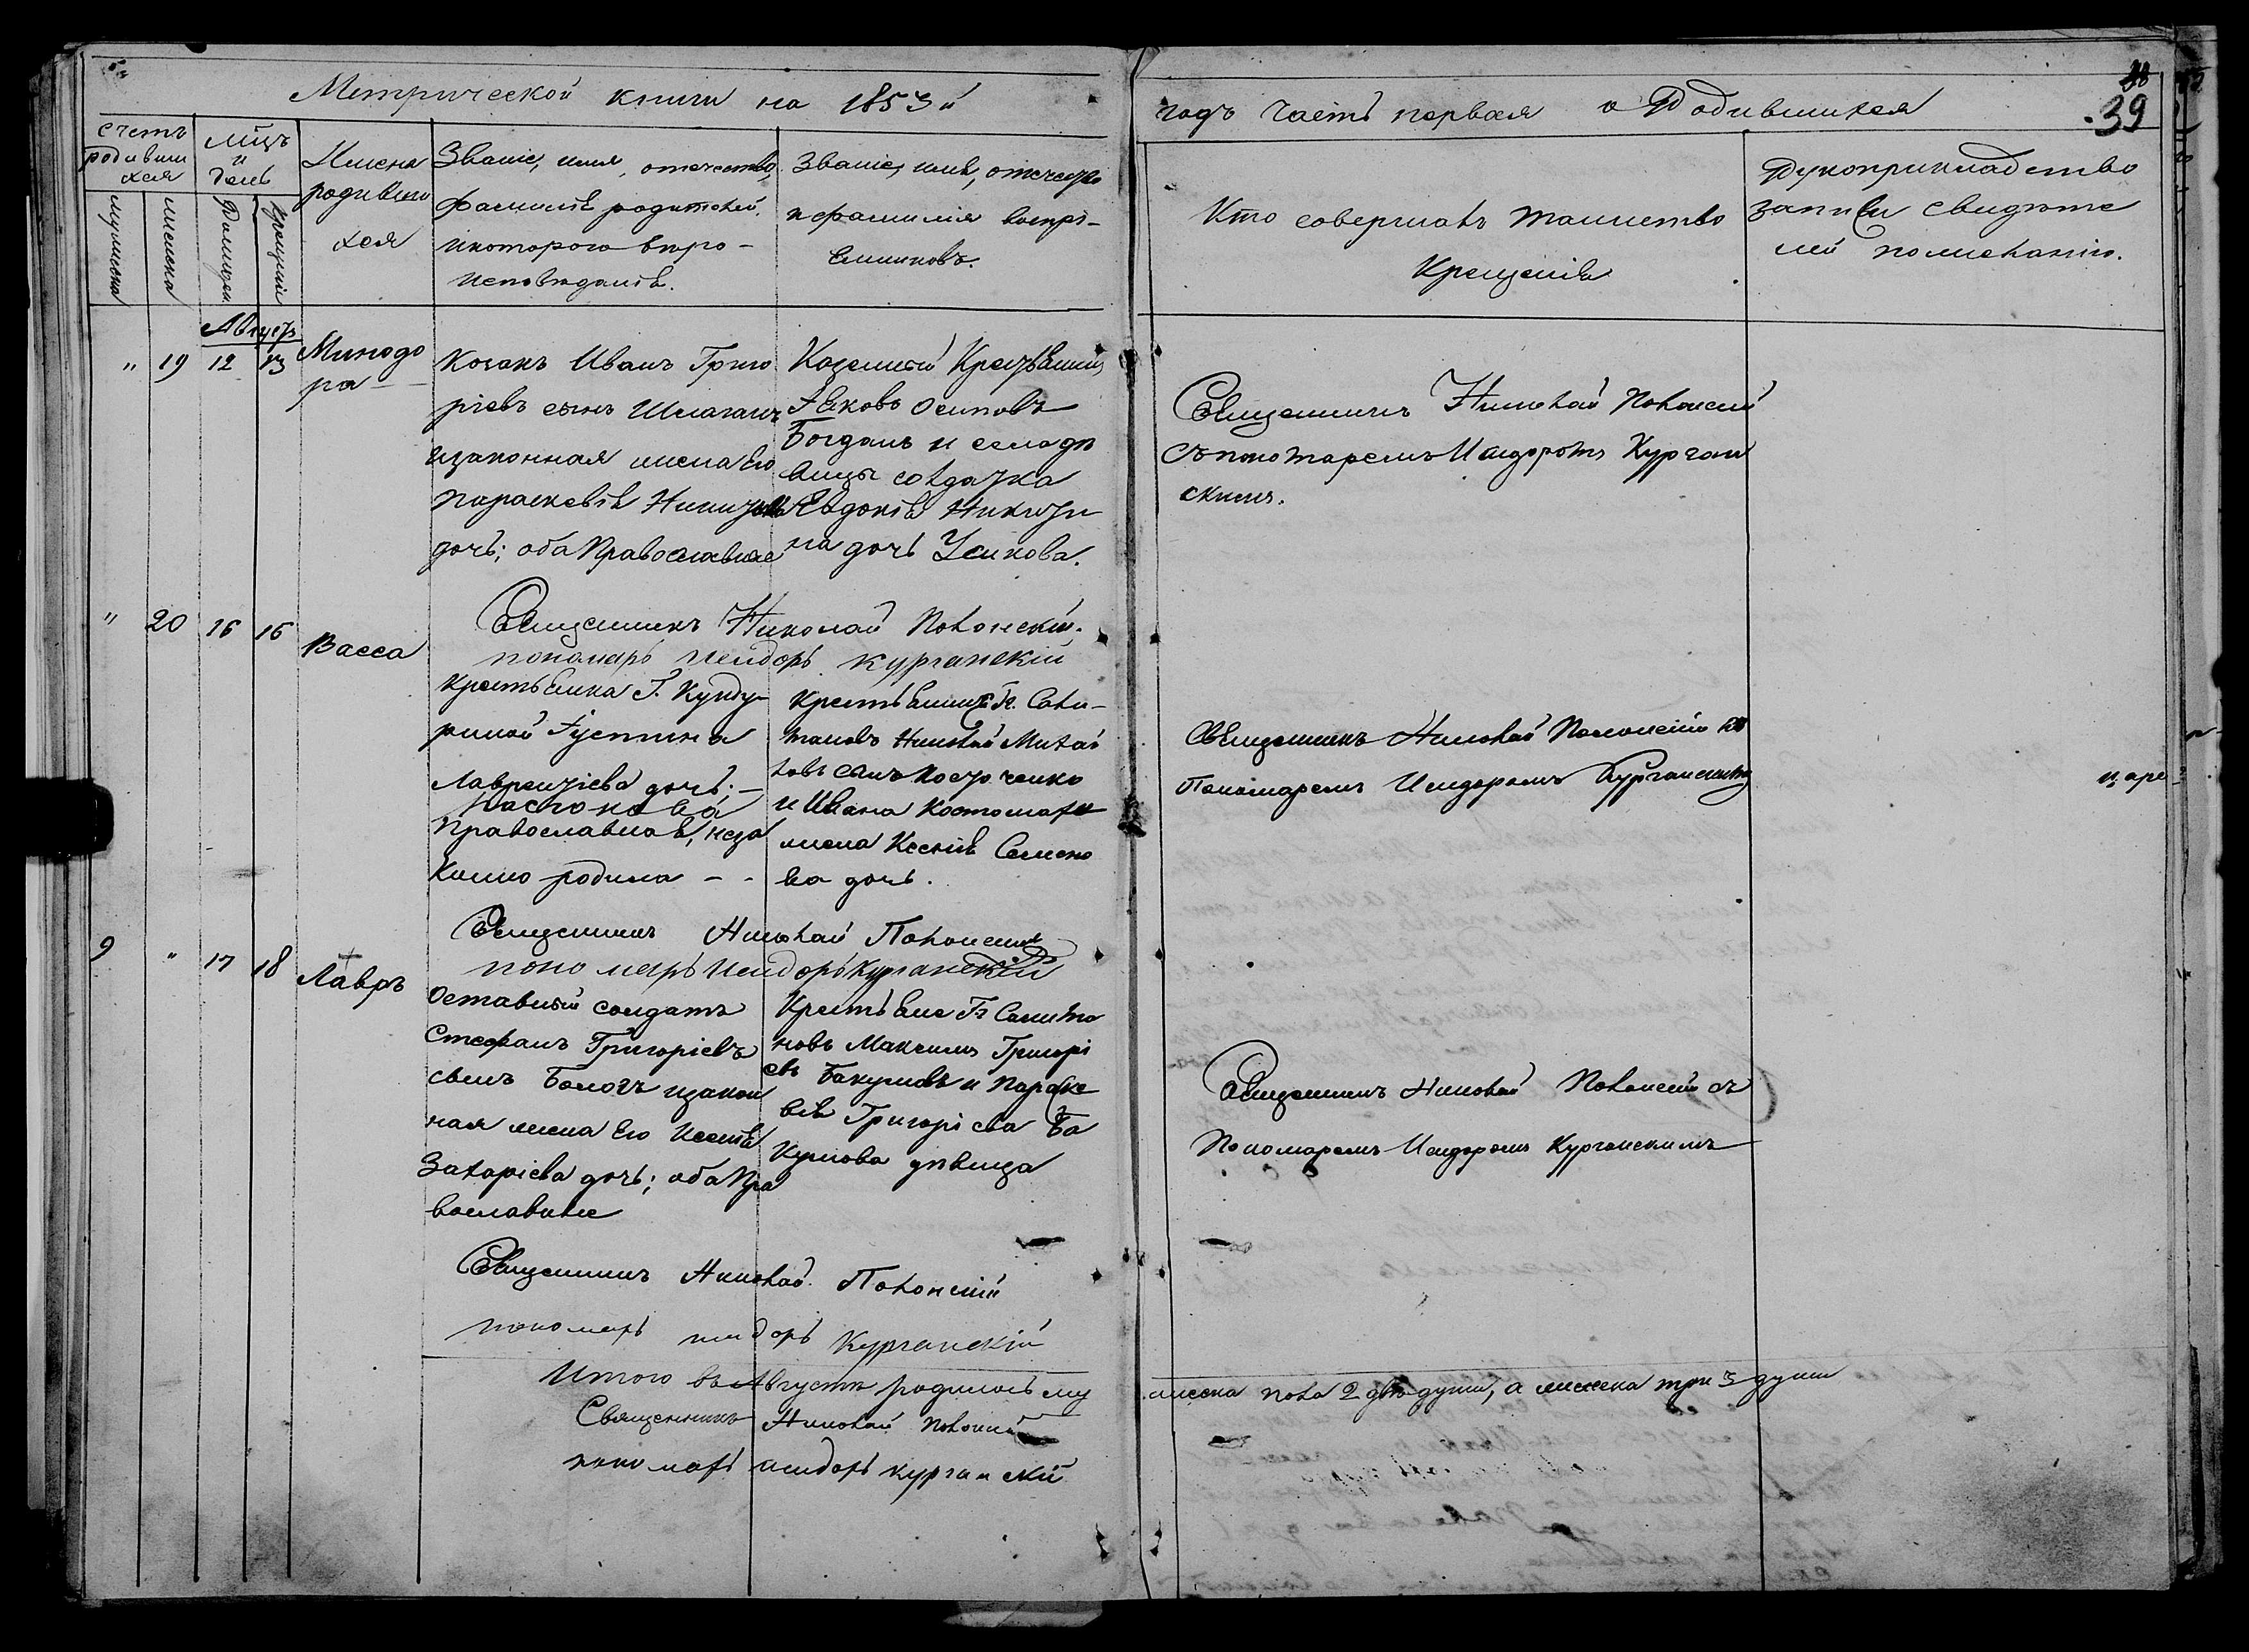 Метрической книги на 1853й
годъ Часть первая о Родившихся
39
счетъ родившихся
Мцъ и день
Имена родившихся
Званіе, имя, отечество,
фамилія родителей,
и котораго вѣро-
исповѣданія.
Званіе, имя, отечество
и фамилія воспрі-
емниковъ.
Кто совершалъ таинство
Крещенія
Рукоприкладство
записи свидѣте
лей по желанію.
мужеска
женска
Рожденія
Крещенія
Августъ
" 19 12 13
Минодо
ра
Козакъ Иванъ Григо
ріевъ сынъ
и законная жена его
Параскевія Никитова
дочь; оба Православные
Казенный Крестьянинъ
Яковъ Осиповъ
Богданъ и села
солдатка
Евдокія Никити
на дочь Усикова.
Священникъ Николай Полонскій
съ пономаремъ Исидоромъ Курган
скимъ.
Священникъ Николай Полонскій.
пономарь Исидоръ Курганскій
" 20 16 16
Васса
крестьянка Г.
Іустина
Лаврентіева дочь;
Православная, неза
конно родила
крестьянинъ Г. Сали-
тановъ Николай Михай
ловъ сынъ
и Ивана
жена Ксенія Семено
ва дочь.
Священникъ Николай Полонскій съ
Пономаремъ Исидоромъ Курганскимъ
Священникъ Николай Полонскій
пономарь Исидоръ Курганскій
9 " 17 18
Лавръ
Отставный солдатъ
Стефанъ Григоріевъ
сынъ и закон
ная жена его Ксенія
Захаріева дочь; оба Пра
вославные
Крестьяне Г. Салита
новъ Максимъ Григорі
евъ Бакумовъ и Параске
вія Григоріева Ба
кумова дѣвица
Священникъ Николай Полонскій съ
Пономаремъ Исидоромъ Курганскимъ
Священникъ Николай Полонскій
пономарь исидоръ Курганскій
Итого въ Августѣ родилось му
жеска пола 2 двѣ души, а женска три 3 души
Священникъ Николай Полонскій
пономарь исидоръ курганскій